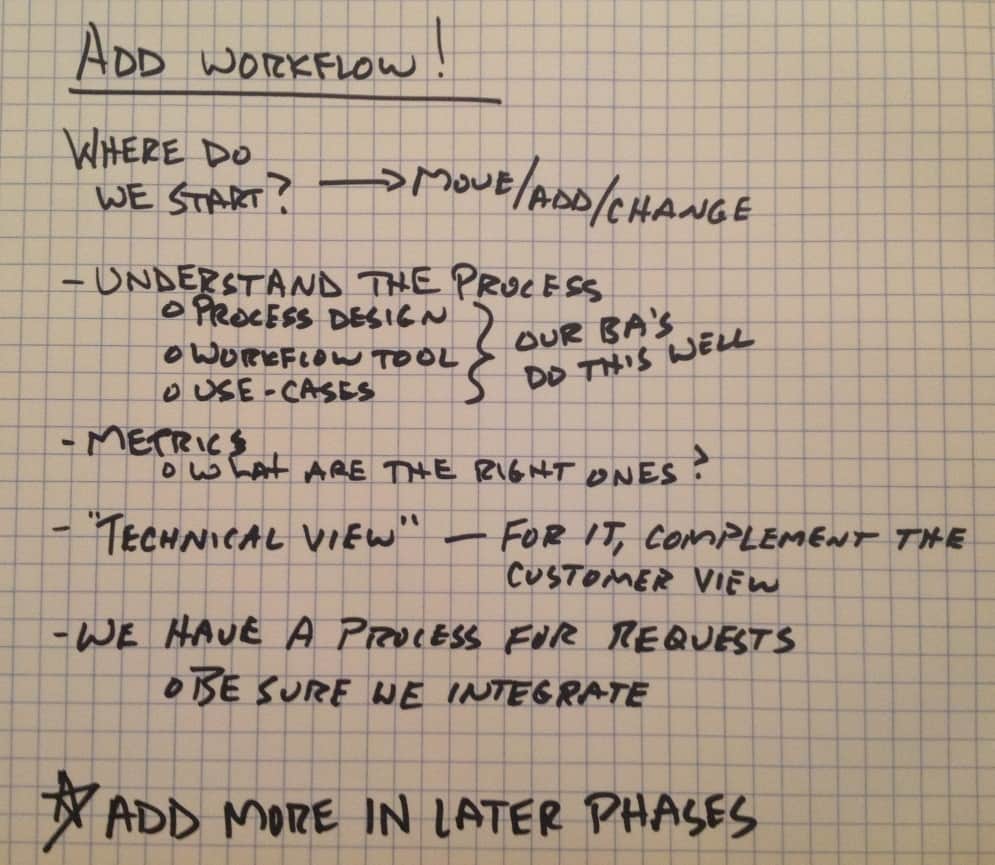 ADD WORKFLOW!
WHERE DO
WE START? → MOVE/ADD/CHANGE
- UNDERSTAND THE PROCESS
o PROCESS DESIGN
o WORKFLOW TOOL
o USE-CASES
} OUR BA'S
DO THIS WELL
- METRICS
o WHAT ARE THE RIGHT ONES?
- "TECHNICAL VIEW" — FOR IT, COMPLEMENT THE
CUSTOMER VIEW
- WE HAVE A PROCESS FOR REQUESTS
o BE SURE WE INTEGRATE
☆ ADD MORE IN LATER PHASES